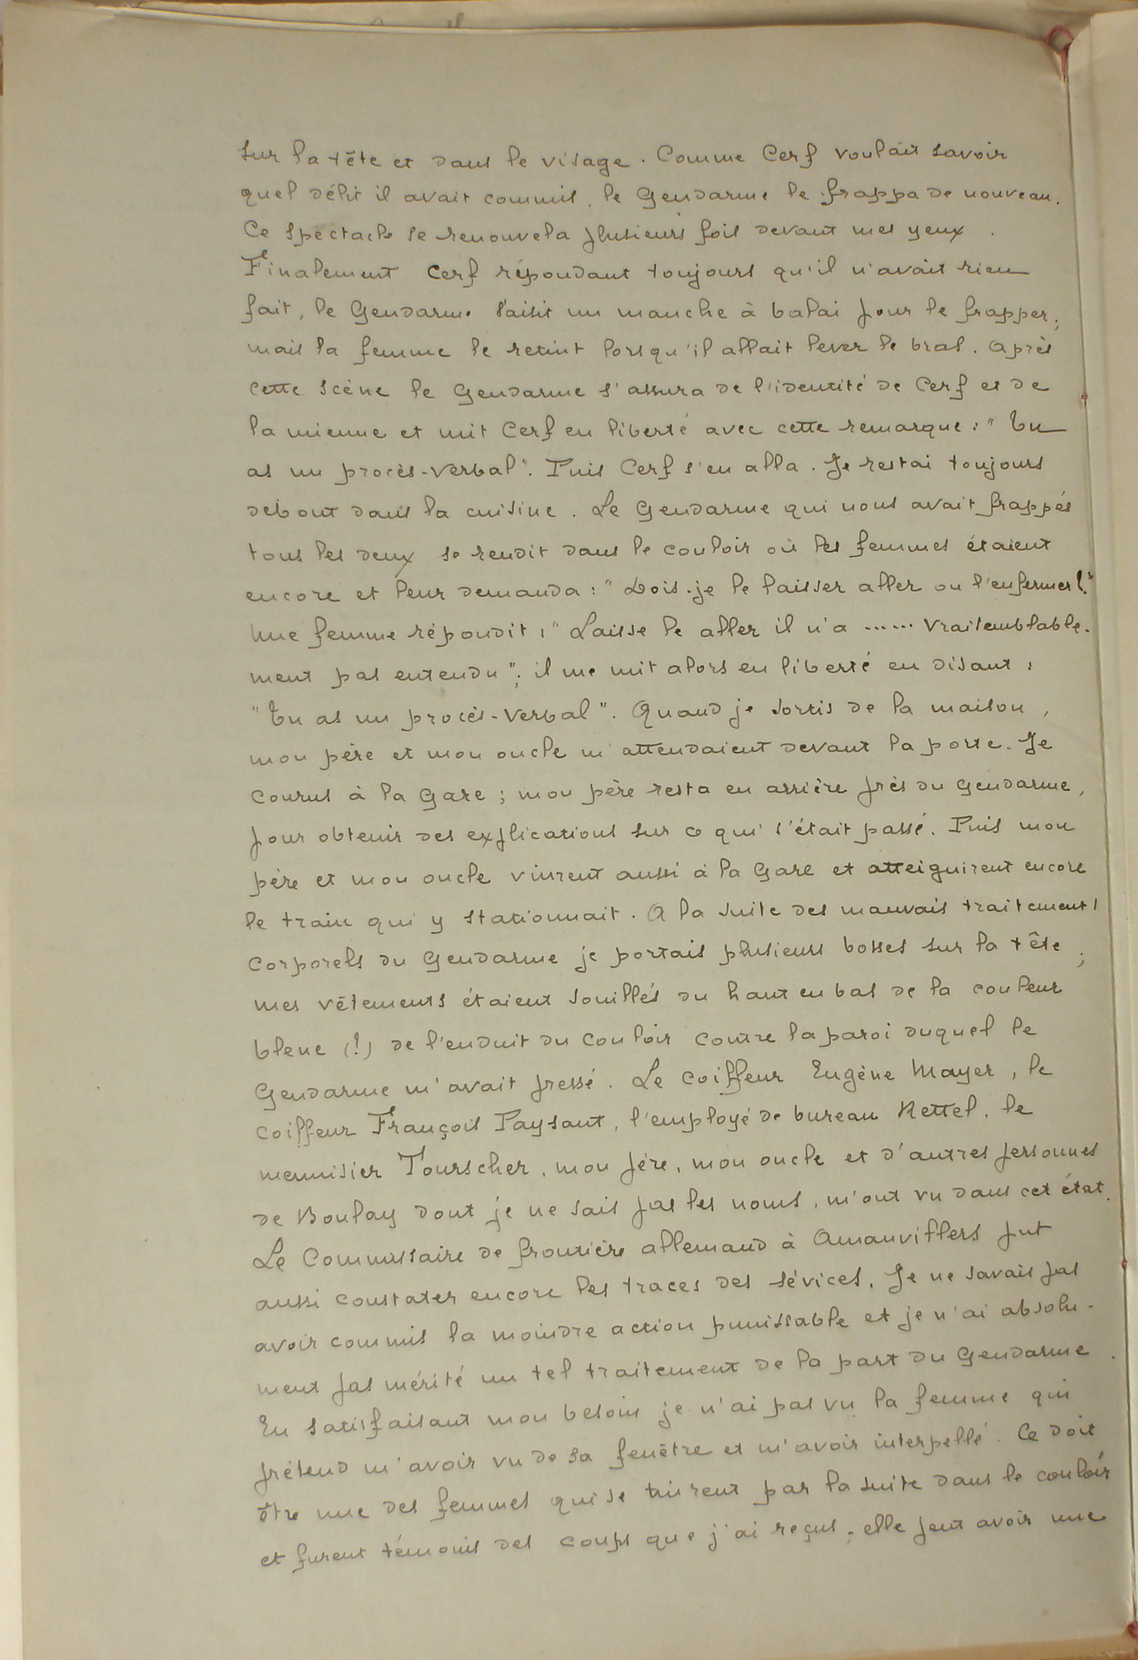 sur la tête et dans le visage. Comme Cerf voulait savoir
quel délit il avait commis, le Gendarme le frappa de nouveau.
Ce spectacle se renouvela plusieurs fois devant mes yeux.
Finalement Cerf répondant toujours qu'il n'avait rien
fait, le Gendarme saisit un manche à balai pour le frapper;
mais la femme le retint lorsqu'il allait lever le bras. Après
cette scène le Gendarme s'assura de l'identité de Cerf et de
la mienne et mit Cerf en liberté avec cette remarque : "Tu
as un procès-verbal". Puis Cerf s'en alla. Je restai toujours
debout dans la cuisine. Le Gendarme qui nous avait frappés
tous les deux se rendit dans le couloir où les femmes étaient
encore et leur demanda : "Dois-je le laisser aller ou l'enfermer?"
Une femme répondit : "Laisse le aller il n'a ...... vraisemblable-
ment pas entendu"; il me mit alors en liberté en disant :
"Tu as un procès-verbal". Quand je sortis de la maison,
mon père et mon oncle m'attendaient devant la porte. Je
courus à la gare; mon père resta en arrière près du gendarme,
pour obtenir des explications sur ce qui s'était passé. Puis mon
père et mon oncle vinrent aussi à la Gare et atteignirent encore
le train qui y stationnait. A la suite des mauvais traitements
corporels du Gendarme je portais plusieurs bosses sur la tête;
mes vêtements étaient souillés du haut en bas de la couleur
bleue (!) de l'enduit du couloir contre la paroi duquel le
Gendarme m'avait pressé. Le coiffeur Eugène Mayer, le
coiffeur François Paysant, l'employé de bureau Nettel, le
menuisier Tourscher, mon père, mon oncle et d'autres personnes
de Boulay dont je ne sais pas les noms, m'ont vu dans cet état.
Le Commissaire de frontière allemand à Amanvillers put
aussi constater encore les traces des sévices. Je ne savais pas
avoir commis la moindre action punissable et je n'ai absolu-
ment pas mérité un tel traitement de la part du Gendarme.
En satisfaisant mon besoin je n'ai pas vu la femme qui
prétend m'avoir vu de sa fenêtre et m'avoir interpellé. Ce doit
être une des femmes qui se tinrent par la suite dans le couloir
et furent témoins des coups que j'ai reçus; elle peut avoir une